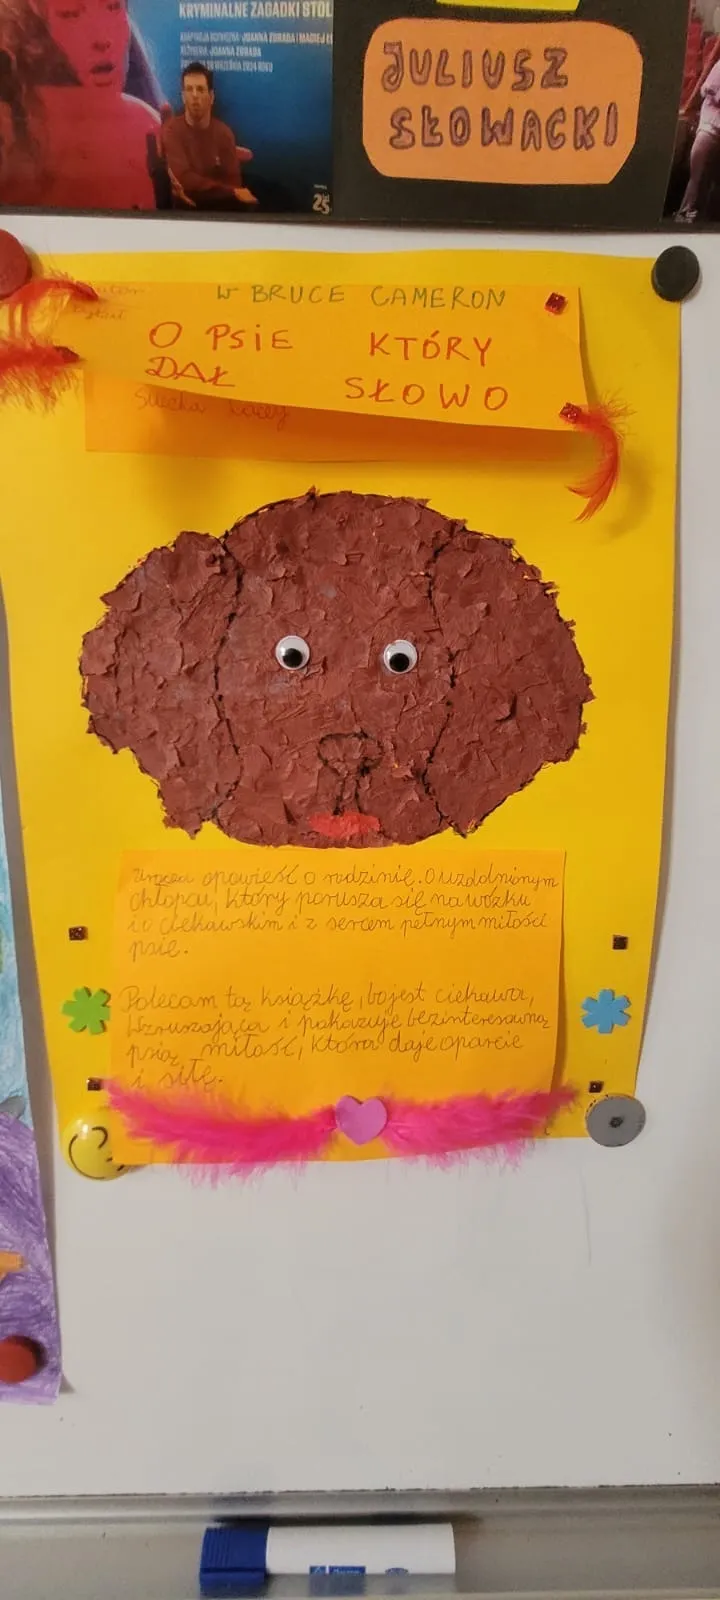 KRYMINALNE ZAGADKI STOL
ADAPTACJA SCENICZNA: JOANNA ZDRADA I MACIEJ
REŻYSERIA: JOANNA ZDRADA
WRZEŚNIA 2024 ROKU
25
JULIUSZ
SŁOWACKI
W BRUCE CAMERON
O PSIE KTÓRY
DAŁ SŁOWO
Urocza opowieść o rodzinię. O uzdolnionym
chłopcu, który porusza się na wózku
i o ciekawskim i z sercem pełnym miłości
psię.
Polecam tą książkę, bo jest ciekawa,
Wzruszająca i pokazuje bezinteresowną
psią miłość, która daje oparcie
i siłę.